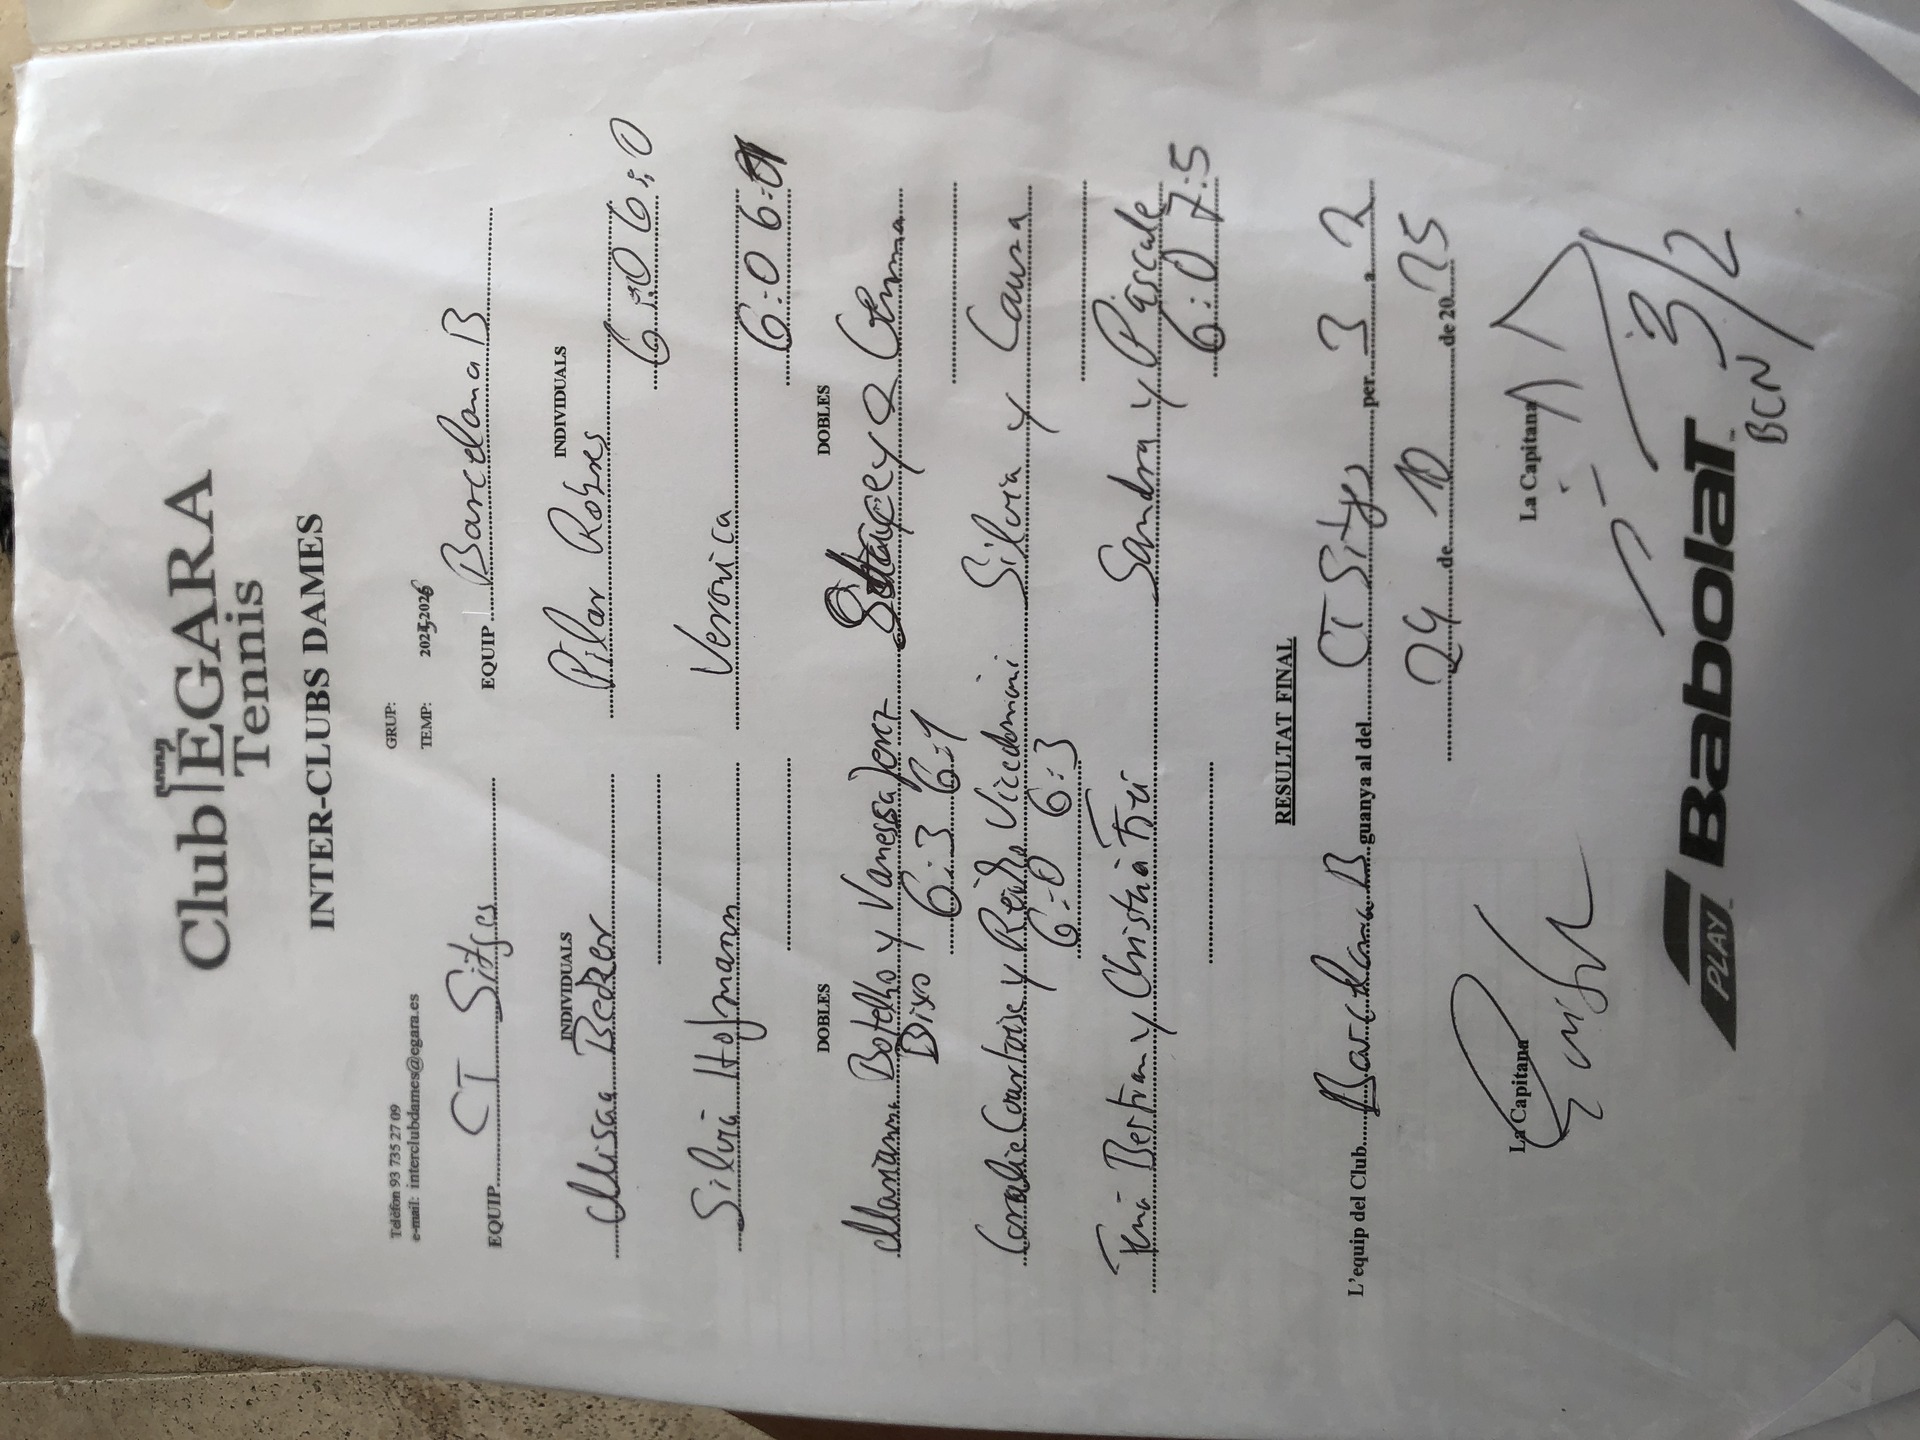 Club EGARA
Tennis
INTER-CLUBS DAMES
Telèfon 93 735 27 09
e-mail: interclubdames@egara.es
GRUP:
TEMP: 2025-2026
EQUIP CT Sitges EQUIP Barcelona B
INDIVIDUALS INDIVIDUALS
Melissa Becker Pilar Robres
6:0 6:0
Silvia Hofmann Veronica
6:0 6:1
DOBLES DOBLES
Marianna Botelho y Vanessa Jenz y Gemma
Dixo 6:3 6:1
Coralie Courtoise y Vicedomini Silvia y Laura
6:0 6:3
Bertran y Christina Sandra y Pascale
6:0 7:5
RESULTAT FINAL
L'equip del Club Barcelona B guanya al del CT Sitges per 3 a 2
24 de 10 de 2025
La Capitana La Capitana
3/2
BCN
PLAY BabolaT